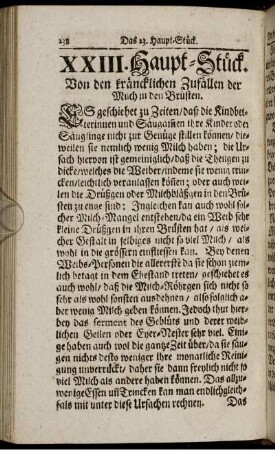 238 Das 23. Haupt-Stück.
XXIII. Haupt-Stück.
Von den kräncklichen Zufällen der
Milch in den Brüsten.
ES geschiehet zu Zeiten/ daß die Kindbet-
terinnen und Säugaim̃en ihre Kinder oder
Säuglinge nicht zur Genüge stillen können/ die-
weilen sie nemlich wenig Milch haben; die Ur-
sach hiervon ist gemeiniglich/ daß die
zu dicke/ welches die Weiber/ indeme sie wenig trin-
cken/ leichtlich veranlassen kön̄en; oder auch wei-
len die Drüßgen oder Milchbläßgen in den Brü-
sten zu enge sind; Ingleichen kan auch wohl sol-
cher Milch-Mangel entstehen/ da ein Weib sehr
kleine Drüßgen in ihren Brüsten hat/ als wel-
cher Gestalt in selbiges nicht so viel Milch/ als
wohl in die grössern einfliessen kan. Bey denen
Weibs-Personen die allererst da sie schon ziem-
lich betagt in dem Ehestand treten/ geschiehet es
auch wohl/ daß die Milch-Röhrgen sich nicht so
sehr als wohl sonsten ausdehnen/ also folglich a-
ber wenig Milch geben können. Jedoch thut hier-
bey das ferment des Geblüts und derer weib-
lichen Geilen oder Eyer-Nester sehr viel. Eini-
ge haben auch wol die gantze Zeit über/ da sie säu-
gen nichts desto weniger ihre monatliche Reini-
gung unverrückt/ daher sie dann freylich nicht so
viel Milch als andere haben können. Das allzu-
wenige Essen un̄ Trincken kan man endlich gleich-
fals mit unter diese Ursachen rechnen. Das